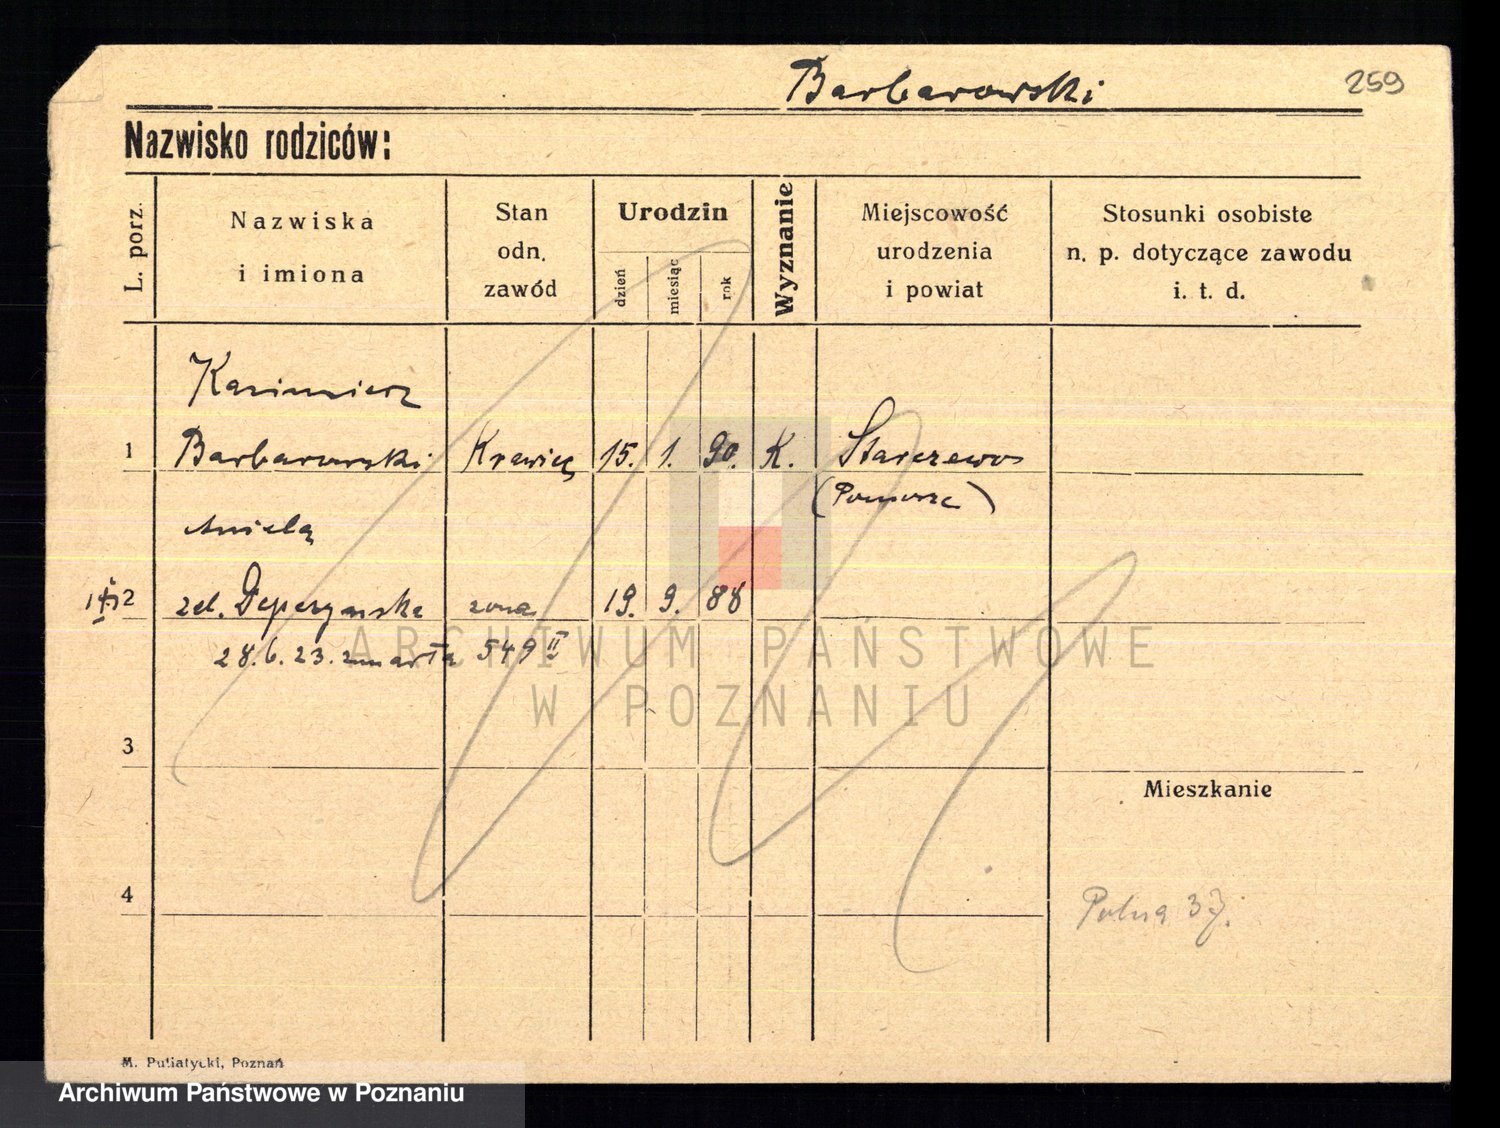 Barbarowski
259
Nazwisko rodziców:
L. porz.
Nazwiska
i imiona
Stan
odn.
zawód
Urodzin
dzień
miesiąc
rok
Wyznanie
Miejscowość
urodzenia
i powiat
Stosunki osobiste
n. p. dotyczące zawodu
i. t. d.
Kazimierz
1 Barbarowski Krawiec 15. 1. 90. K. Starczewo
(Pomorze)
Aniela
2 zd. żona 19. 9. 88
28.6.23. zmarła 549 II
ARCHIWUM PAŃSTWOWE
W POZNANIU
3
Mieszkanie
4
Polna 37.
M. Putiatycki, Poznań
Archiwum Państwowe w Poznaniu